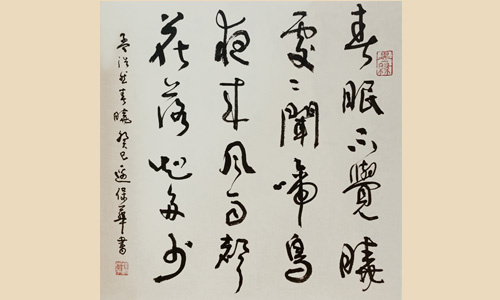 春眠不覺曉
處〻聞啼鳥
夜來風雨聲
花落知多少
孟浩然春曉癸巳保華書